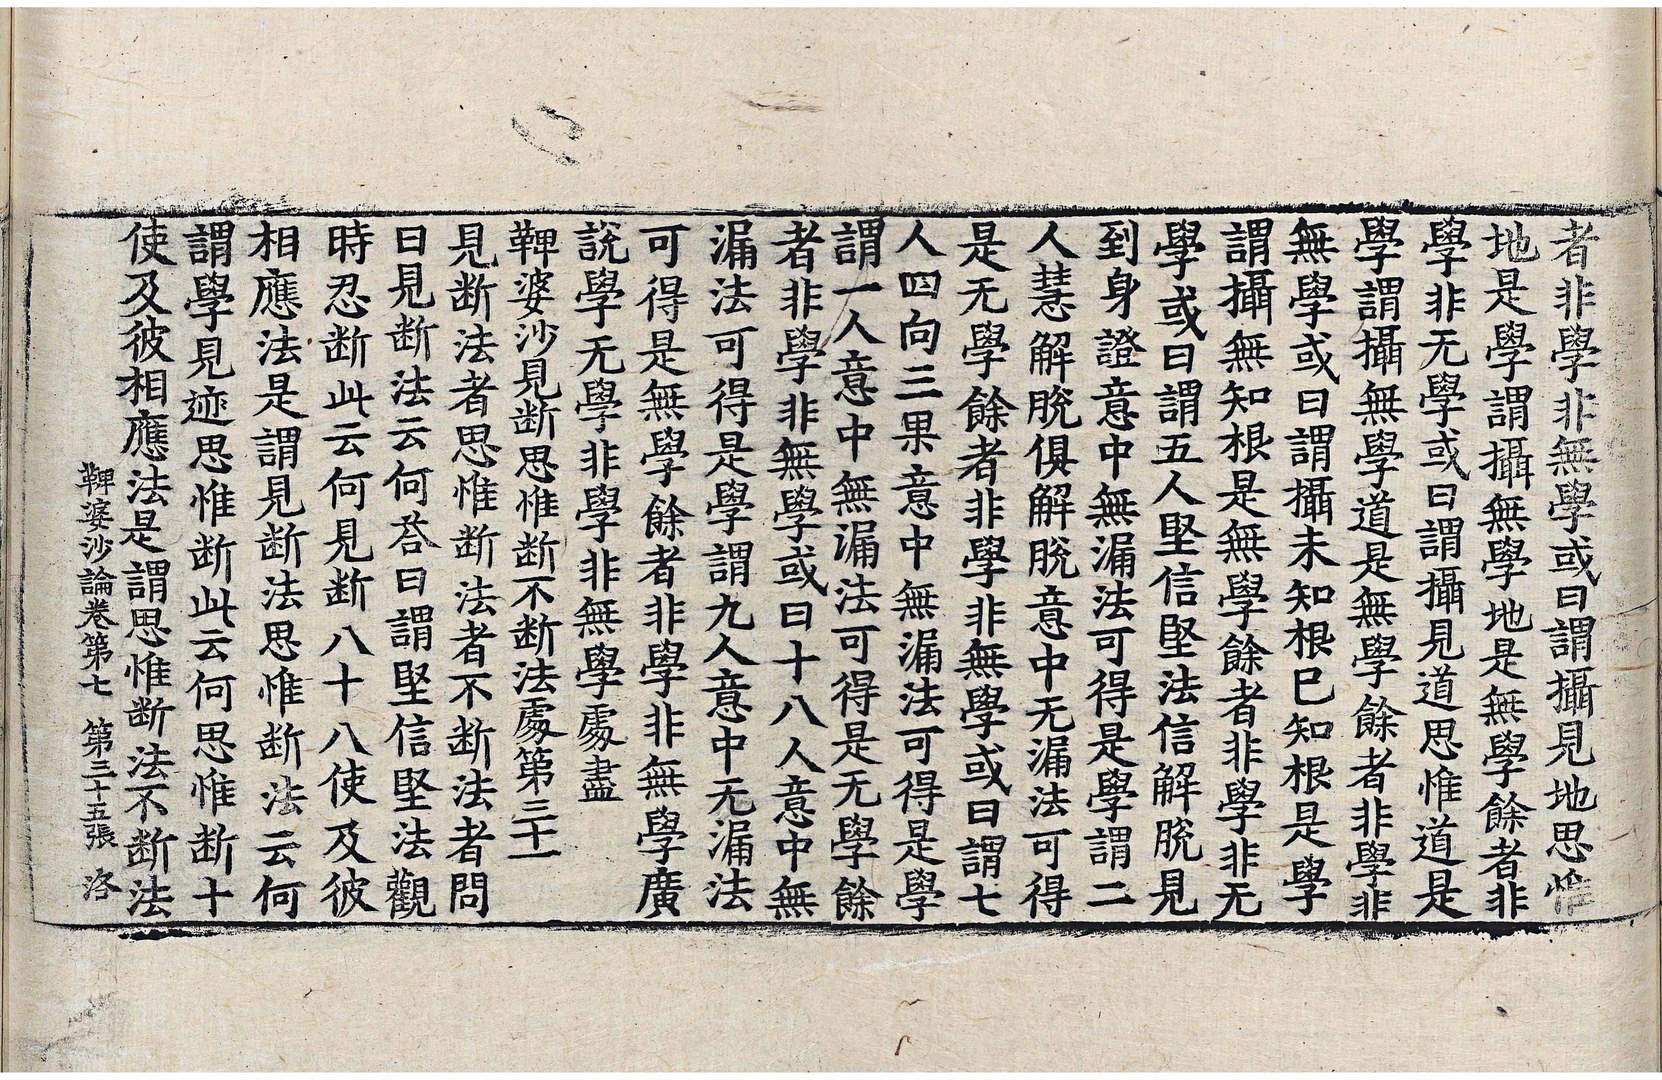 者非學非無學或曰謂攝見地思惟
地是學謂攝無學地是無學餘者非
學非无學或曰謂攝見道思惟道是
學謂攝無學道是無學餘者非學非
無學或曰謂攝未知根已知根是學
謂攝無知根是無學餘者非學非无
學或曰謂五人堅信堅法信解脫見
到身證意中無漏法可得是學謂二
人慧解脫俱解脫意中无漏法可得
是无學餘者非學非無學或曰謂七
人四向三果意中無漏法可得是學
謂一人意中無漏法可得是无學餘
者非學非無學或曰十八人意中無
漏法可得是學謂九人意中无漏法
可得是無學餘者非學非無學廣
說學无學非學非無學處盡
鞞婆沙見断思惟断不断法處第三十一
見断法者思惟断法者不断法者問
曰見断法云何荅曰謂堅信堅法觀
時忍断此云何見断八十八使及彼
相應法是謂見断法思惟断法云何
謂學見迹思惟断此云何思惟断十
使及彼相應法是謂思惟断法不断法
鞞婆沙論卷第七　第三十五張　洛